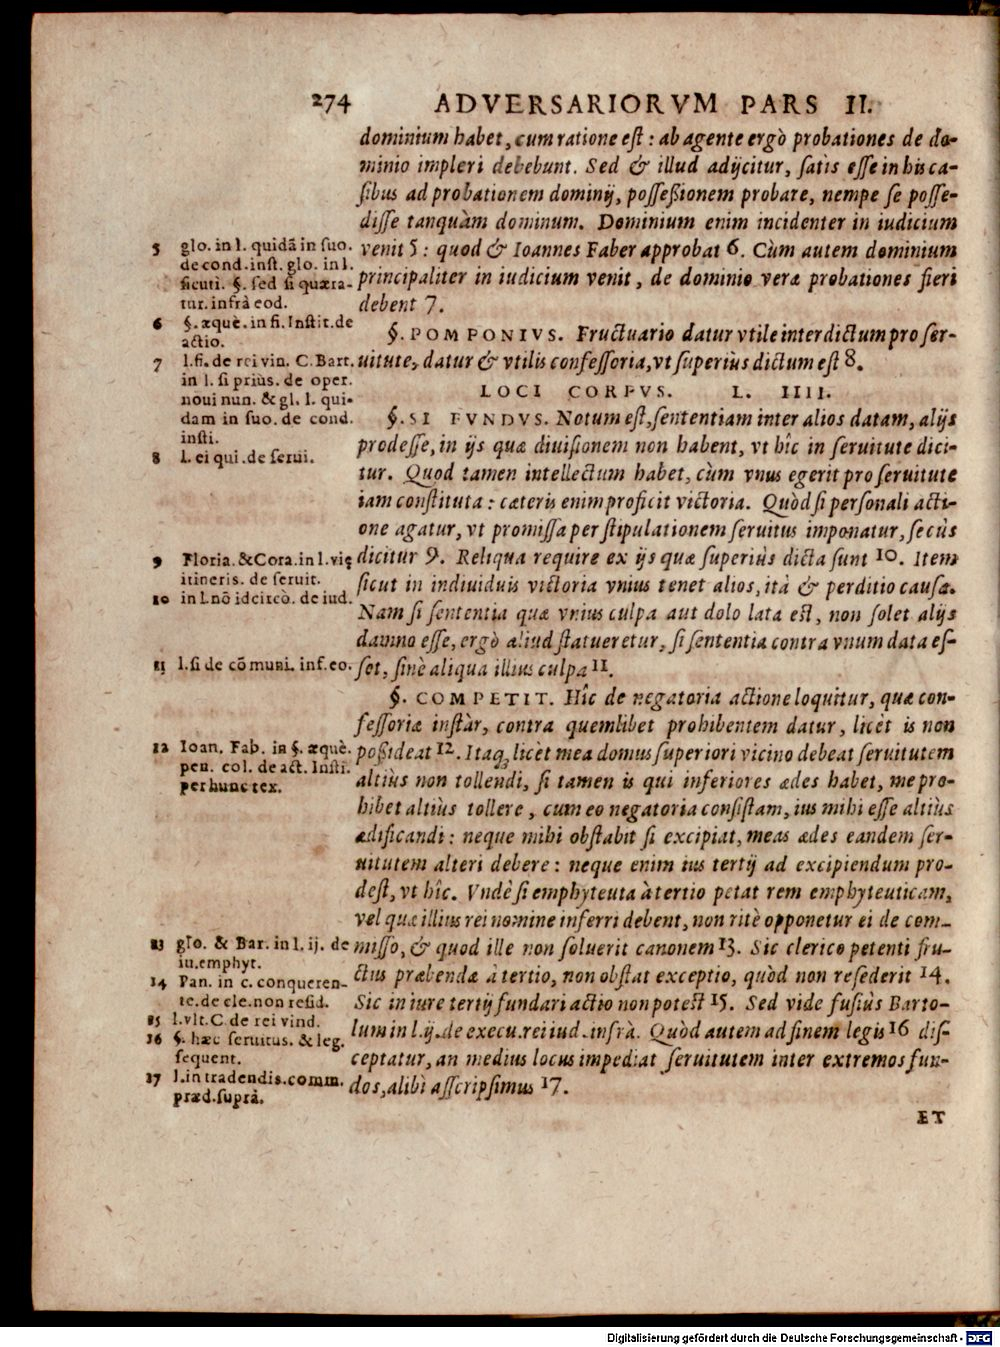 274 ADVERSARIORVM PARS II.
dominium habet, cum ratione est: ab agente ergò probationes de do-
minio impleri debebunt. Sed & illud adijcitur, satis esse in his ca-
sibus ad probationem dominij, possessionem probare, nempe se posse-
disse tanquàm dominum. Dominium enim incidenter in iudicium
venit 5: quod & Ioannes Faber approbat 6. Cùm autem dominium
principaliter in iudicium venit, de dominio veræ probationes fieri
debent 7.
§. POMPONIVS. Fructuario datur vtile interdictum pro ser-
uitute, datur & vtilis confessoria, vt superiùs dictum est 8.
LOCI CORPVS. L. IIII.
§. SI FVNDVS. Notum est, sententiam inter alios datam, alijs
prodesse, in ijs quæ diuisionem non habent, vt hîc in seruitute dici-
tur. Quod tamen intellectum habet, cùm vnus egerit pro seruitute
iam constituta: cæteris enim proficit victoria. Quòd si personali acti-
one agatur, vt promissa per stipulationem seruitus imponatur, secùs
dicitur 9. Reliqua require ex ijs quæ superiùs dicta sunt 10. Item
sicut in indiuiduis victoria vnius tenet alios, ità & perditio causæ.
Nam si sententia quæ vnius culpa aut dolo lata est, non solet alijs
damno esse, ergò aliud statueretur, si sententia contra vnum data es-
set, sinè aliqua illius culpa 11.
§. COMPETIT. Hîc de negatoria actione loquitur, quæ con-
fessoriæ instàr, contra quemlibet prohibentem datur, licèt is non
possideat 12. Itaq; licèt mea domus superiori vicino debeat seruitutem
altiùs non tollendi, si tamen is qui inferiores ædes habet, me pro-
hibet altiùs tollere, cum eo negatoria consistam, ius mihi esse altiùs
ædificandi: neque mihi obstabit si excipiat, meas ædes eandem ser-
uitutem alteri debere: neque enim ius tertij ad excipiendum pro-
dest, vt hîc. Vndè si emphyteuta à tertio petat rem emphyteuticam,
vel quæ illius rei nomine inferri debent, non ritè opponetur ei de com-
misso, & quod ille non soluerit canonem 13. Sic clerico petenti fru-
ctus præbendæ à tertio, non obstat exceptio, quòd non resederit 14.
Sic in iure tertij fundari actio non potest 15. Sed vide fusiùs Barto-
lum in l. ij. de execu. rei iud. infrà. Quòd autem ad finem legis 16 dis-
ceptatur, an medius locus impediat seruitutem inter extremos fun-
dos, alibì asscripsimus 17.
ET
5 glo. in l. quidã in suo.
de cond. inst. glo. in l.
sicuti. §. sed si quæra-
tur. infrà eod.
6 §. æquè. in fi. Instit. de
actio.
7 l. fi. de rei vin. C. Bart.
in l. si priùs. de oper.
noui nun. & gl. l. qui-
dam in suo. de cond.
insti.
8 l. ei qui. de serui.
9 Floria. & Cora. in l. vię
itineris. de seruit.
10 in l. nõ idcircò. de iud.
11 l. si de cõmuni. inf. eo.
12 Ioan. Fab. in §. æquè.
pen. col. de act. Insti.
per hunc tex.
13 glo. & Bar. in l. ij. de
iu. emphyt.
14 Pan. in c. conqueren-
te. de cle. non resid.
15 l. vlt. C. de rei vind.
16 §. hæc seruitus. & leg.
sequent.
17 l. in tradendis. comm.
præd. suprà.
Digitalisierung gefördert durch die Deutsche Forschungsgemeinschaft - DFG